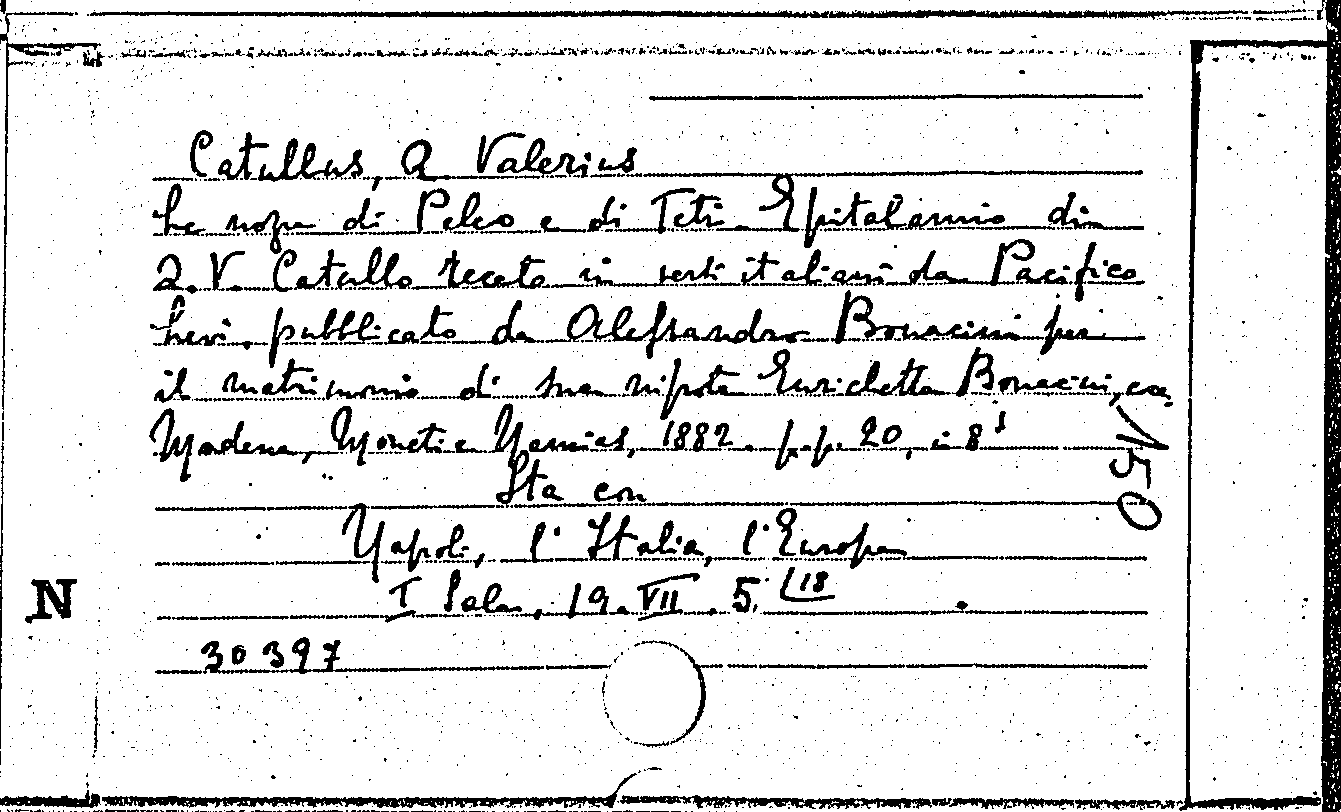 Catullus, Q Valerius
Le nozze di Peleo e di Teti. Epitalamio di
Q. V. Catullo recato in versi italiani da Pacifico
Levi, pubblicato da Alessandro Bonacini per
il matrimonio di sua nipote Enrichetta Bonacini, ecc.
Modena, Moneti e 1882. p.p. 20, in 8°
Sta con
Napoli, l'Italia, l'Europa
I Sala, 19. VII. 5. (18
30397
N